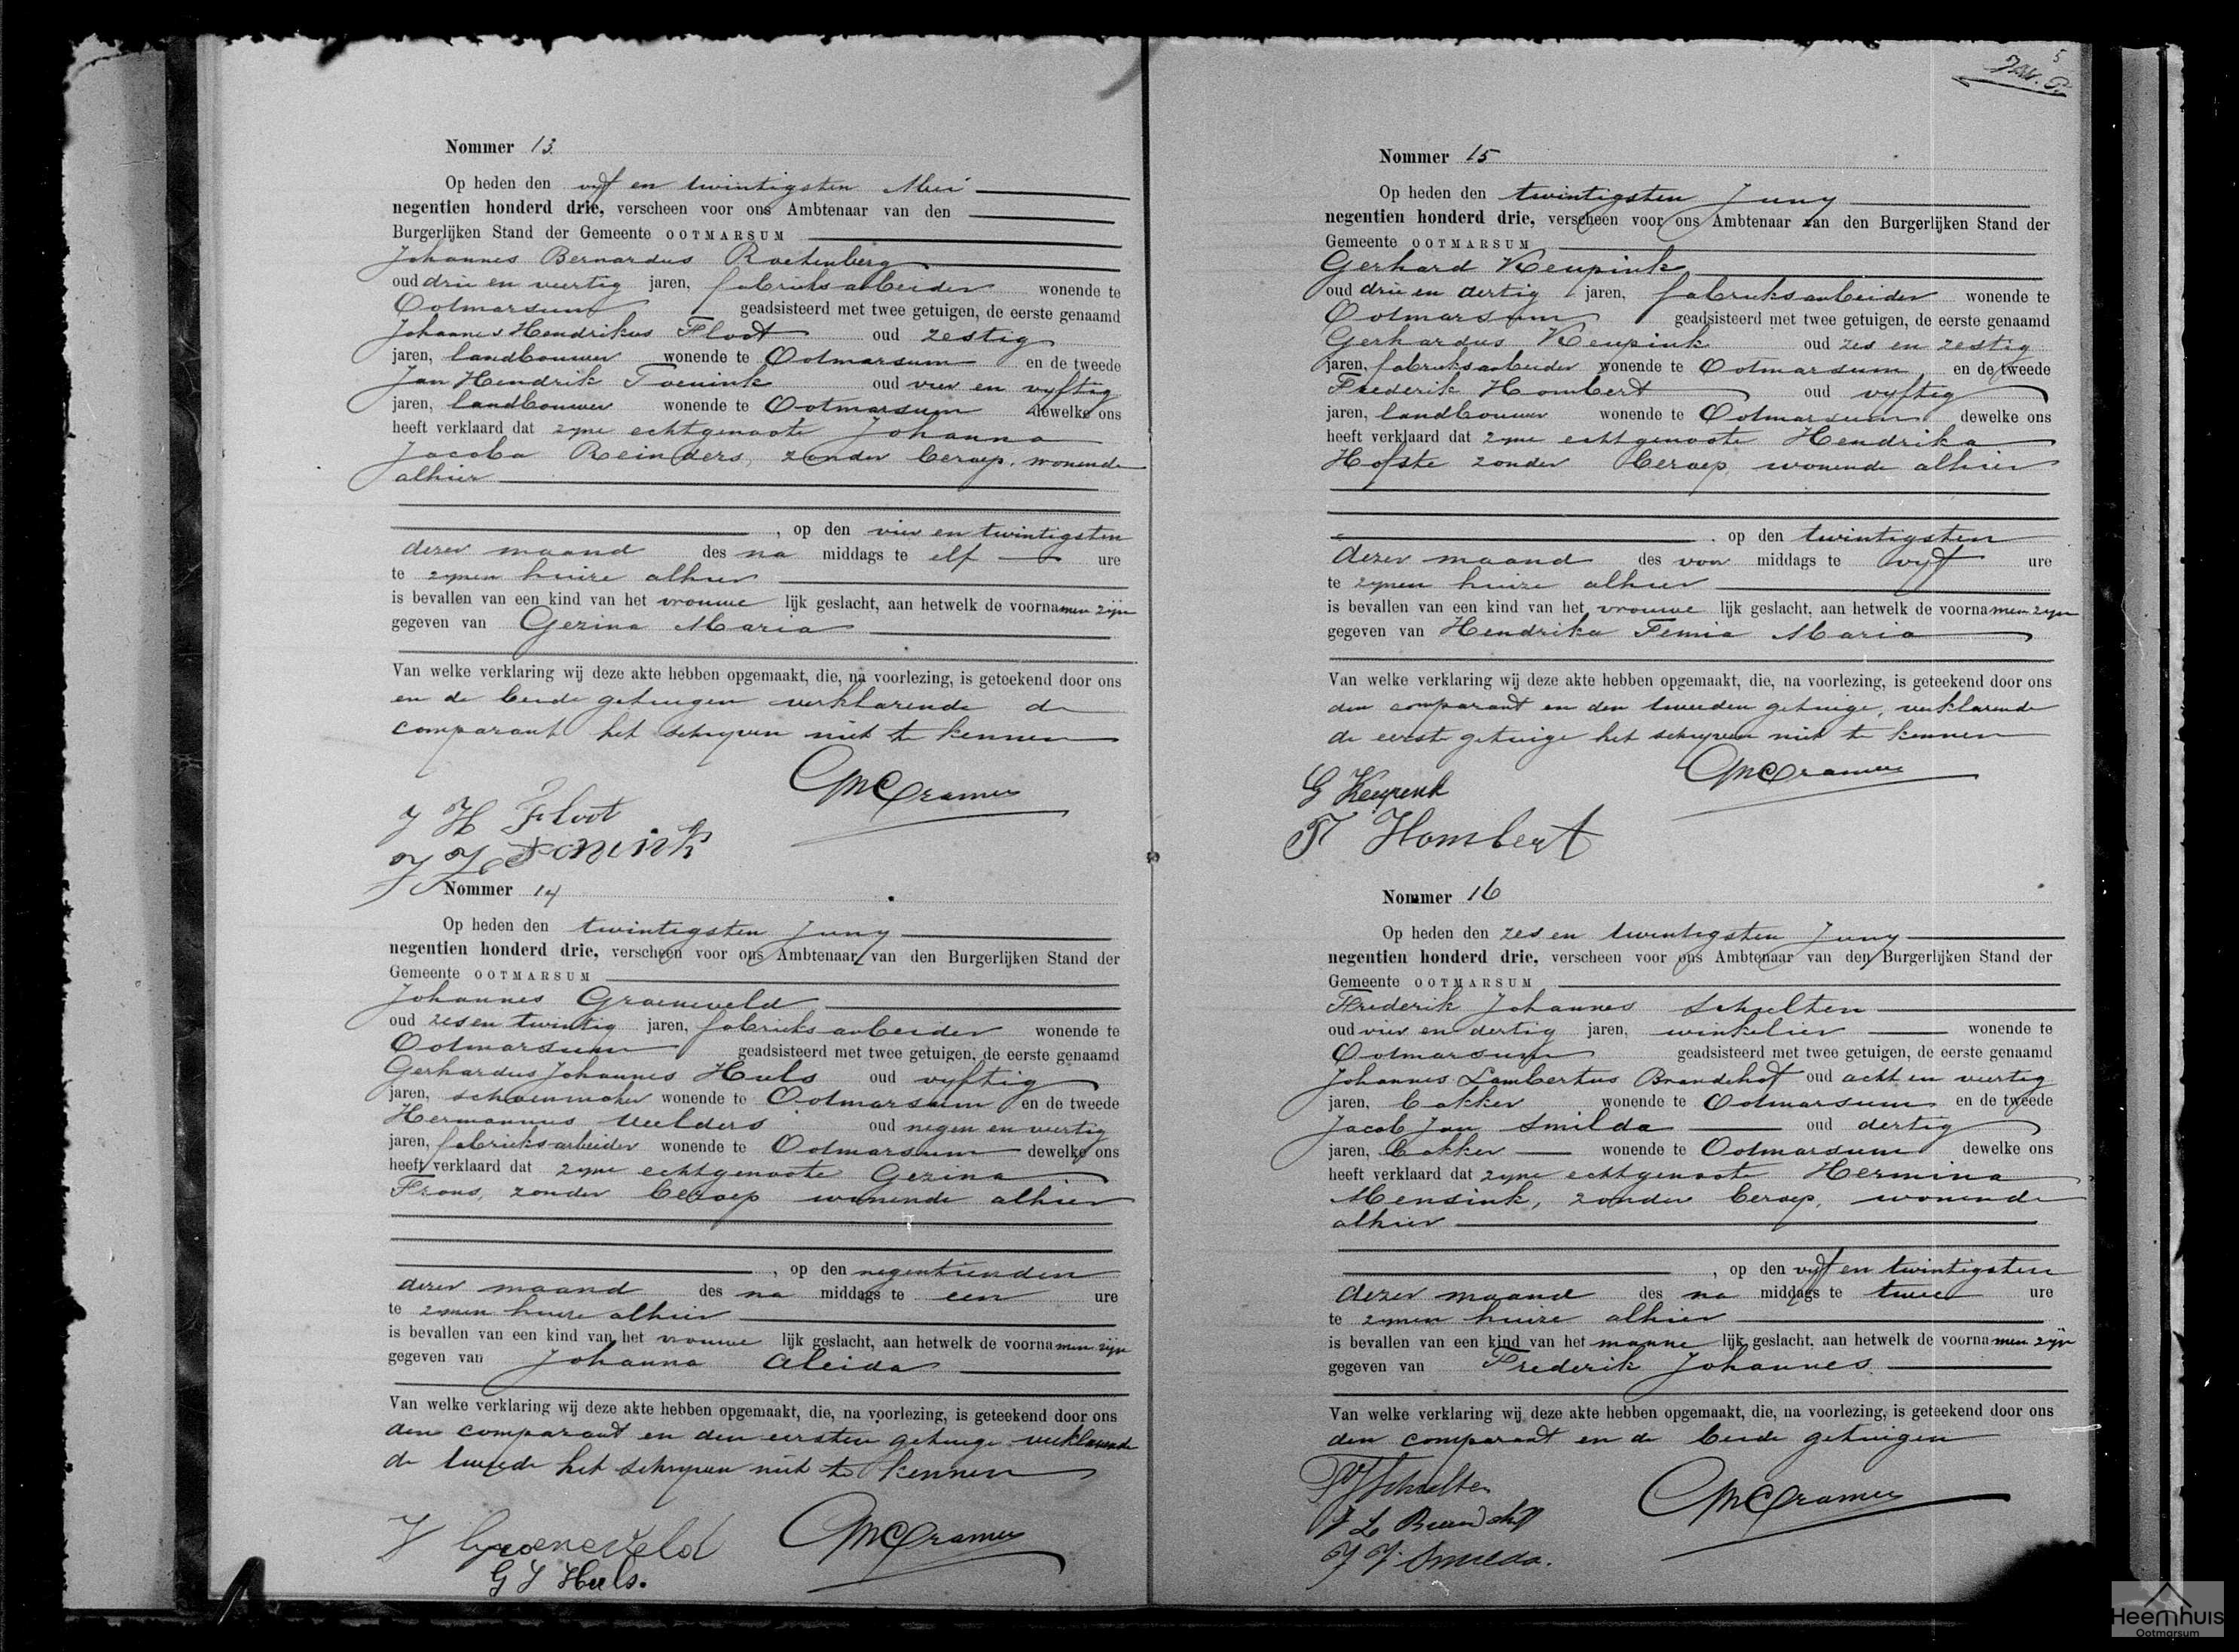 Nommer 13
Op heden den vyf en twintigsten Mei
negentien honderd drie, verscheen voor ons Ambtenaar van den
Burgerlijken Stand der Gemeente OOTMARSUM
Johannes Bernardus Roetenberg
oud drie en veertig jaren, fabrieksarbeider wonende te
Ootmarsum geadsisteerd met twee getuigen, de eerste genaamd
Johannes Hendrikus Floot oud zestig
jaren, landbouwer wonende te Ootmarsum en de tweede
Jan Hendrik Toenink oud vier en vyftig
jaren, landbouwer wonende te Ootmarsum dewelke ons
heeft verklaard dat zyne echtgenoote Johanna
Jacoba Reinders, zonder beroep, wonende
alhier
, op den vier en twintigsten
dezer maand des na middags te elf ure
te zynen huize alhier
is bevallen van een kind van het vrouwe lijk geslacht, aan hetwelk de voornamen zijn
gegeven van Gezina Maria
Van welke verklaring wij deze akte hebben opgemaakt, die, na voorlezing, is geteekend door ons
en de beide getuigen verklarende de
comparant het schryven niet te kennen
Cramer
J H Floot
J H Tonink
Nommer 14
Op heden den twintigsten Juny
negentien honderd drie, verscheen voor ons Ambtenaar van den Burgerlijken Stand der
Gemeente OOTMARSUM
Johannes Groeneveld
oud zes en twintig jaren, fabrieksarbeider wonende te
Ootmarsum geadsisteerd met twee getuigen, de eerste genaamd
Gerhardus Johannes Huls oud vyftig
jaren, schoenmaker wonende te Ootmarsum en de tweede
Hermannus Meelders oud negen en veertig
jaren, fabrieksarbeider wonende te Ootmarsum dewelke ons
heeft verklaard dat zyne echtgenoote Gezina
Frons, zonder beroep wonende alhier
, op den negentienden
dezer maand des na middags te een ure
te zynen huize alhier
is bevallen van een kind van het vrouwe lijk geslacht, aan hetwelk de voornamen zijn
gegeven van Johanna Aleida
Van welke verklaring wij deze akte hebben opgemaakt, die, na voorlezing, is geteekend door ons
den comparant en den eersten getuige verklarende
de tweede het schryven niet te kennen
J Groeneveld
Cramer
G J Huls.
5
Nommer 15
Op heden den twintigsten Juny
negentien honderd drie, verscheen voor ons Ambtenaar van den Burgerlijken Stand der
Gemeente OOTMARSUM
Gerhard Keupink
oud drie en dertig jaren, fabrieksarbeider wonende te
Ootmarsum geadsisteerd met twee getuigen, de eerste genaamd
Gerhardus Keupink oud zes en zestig
jaren, fabrieksarbeider wonende te Ootmarsum en de tweede
Frederik Hombert oud vyftig
jaren, landbouwer wonende te Ootmarsum dewelke ons
heeft verklaard dat zyne echtgenoote Hendrika
Hofste zonder beroep, wonende alhier
, op den twintigsten
dezer maand des voor middags te vyf ure
te zynen huize alhier
is bevallen van een kind van het vrouwe lijk geslacht, aan hetwelk de voornamen zyn
gegeven van Hendrika Femia Maria
Van welke verklaring wij deze akte hebben opgemaakt, die, na voorlezing, is geteekend door ons
den comparant en den tweeden getuige, verklarende
de eerste getuige het schryven niet te kennen
G Keupenk
Cramer
F Hombert
Nommer 16
Op heden den zes en twintigsten Juny
negentien honderd drie, verscheen voor ons Ambtenaar van den Burgerlijken Stand der
Gemeente OOTMARSUM
Frederik Johannes Schulten
oud vier en dertig jaren, winkelier wonende te
Ootmarsum geadsisteerd met twee getuigen, de eerste genaamd
Johannes Lambertus Brandehof oud acht en veertig
jaren, bakker wonende te Ootmarsum en de tweede
Jacob Jan Smilda oud dertig
jaren, bakker wonende te Ootmarsum dewelke ons
heeft verklaard dat zyne echtgenoote Hermina
Mensink, zonder beroep, wonende
alhier
, op den vyf en twintigsten
dezer maand des na middags te twee ure
te zynen huize alhier
is bevallen van een kind van het manne lijk geslacht, aan hetwelk de voornamen zijn
gegeven van Frederik Johannes
Van welke verklaring wij deze akte hebben opgemaakt, die, na voorlezing, is geteekend door ons
den comparant en de beide getuigen
Schulten
Cramer
J L
J J Smilda.
Heemhuis
Ootmarsum